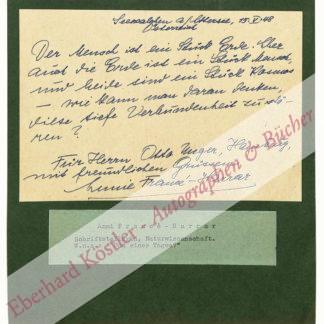 Seewalchen a/Attersee, 15.V.48
Österreich
Der Mensch ist ein Stück Erde. Aber
auch die Erde ist ein Stück Mensch,
und beide sind ein Stück Kosmos
– wie kann man daran denken,
diese tiefe Verbundenheit zu stö-
ren?
Für Herrn Otto Unger,
mit freundlichen Grüssen
Annie Francé-Harrar
Anni Francé-Harrar
Schriftstellerin, Naturwissenschaft.
eines Yogws"
Eberhard Köstler - Autographen & Bücher